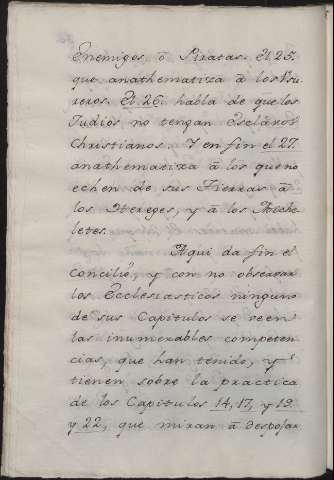 Enemigos, ò Piratas. El 25.
que anathematiza â los Vsu-
reros. El 26. habla de que los
Judios no tengan Esclavos
Christianos. Y en fin el 27.
anathematiza â los que no
echen de sus Tierras â
los Hereges, y â los
letes.
Aqui da fin el
Concilio, y con no observar
los Ecclesiasticos ninguno
de sus Capitulos se veen
las inumerables competen-
cias, que han tenido, y
tienen sobre la practica
de los Capitulos 14, 17, y 19
y 22, que miran â despojar